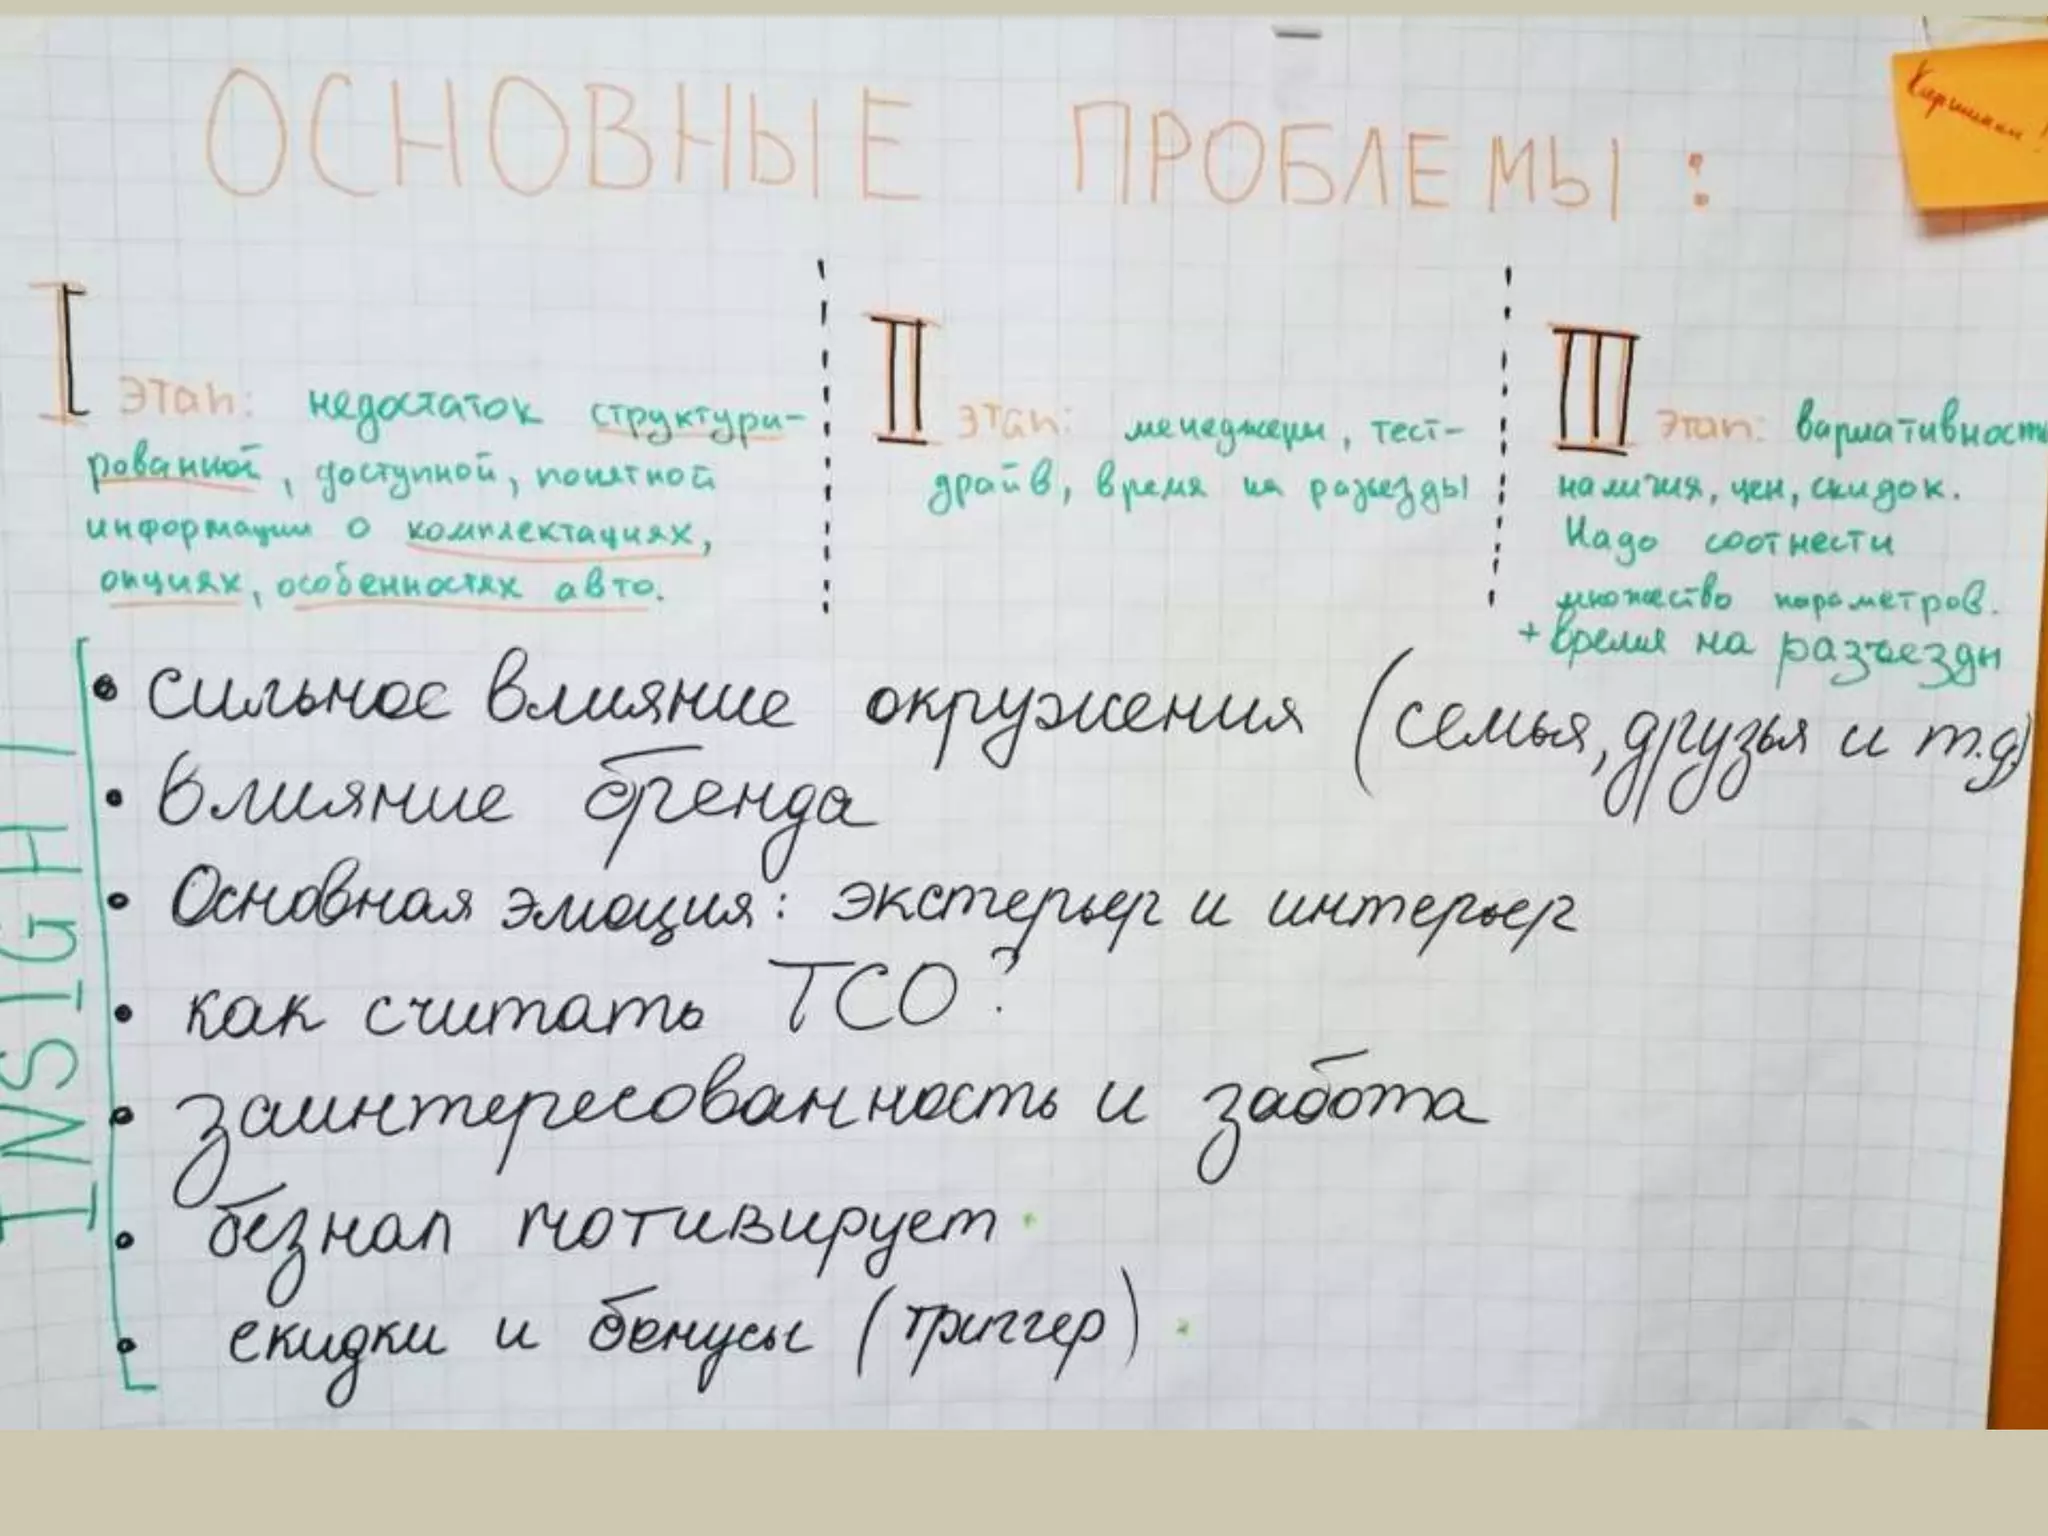 ОСНОВНЫЕ ПРОБЛЕМЫ:
Картинки!
I этап: недостаток структури-
рованной, доступной, понятной
информации о комплектациях,
опциях, особенностях авто.
II этап: менеджеры, тест-
драйв, время на разъезды
III этап: вариативность
наличия, цен, скидок.
Надо соотнести
множество параметров.
+ время на разъезды
INSIGHT
• сильное влияние окружения (семья, друзья и т.д)
• влияние бренда
• Основная эмоция: экстерьер и интерьер
• как считать TCO?
• заинтересованность и забота
• безнал мотивирует
• скидки и бонусы (триггер)